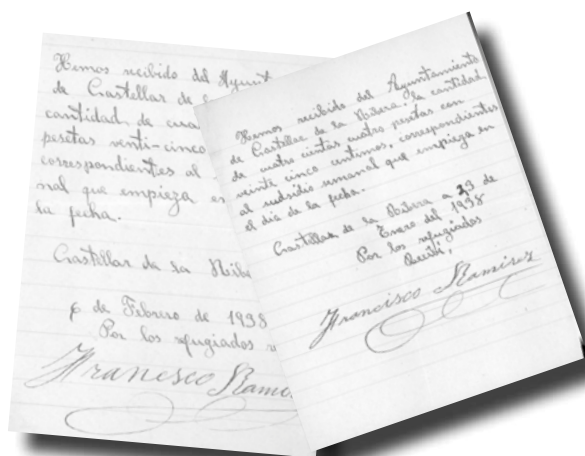 Hemos recibido del Ayunt
de Castellar de la
cantidad, de cua
pesetas venti-cinco
correspondientes al
nal que empieza en
la fecha.
Castellar de la Ribe
6 de Febrero de 1938
Por los refugiados
Francisco Rami
Hemos recibido del Ayuntamiento
de Castellar de la Ribera, la cantidad
de cuatro cientas cuatro pesetas con
veinte cinco centimos, correspondientes
al subsidio semanal que empieza en
el dia de la fecha.
Castellar de la Ribera a 23 de
Enero del 1938
Por los refugiados
Recibi,
Francisco Ramirez